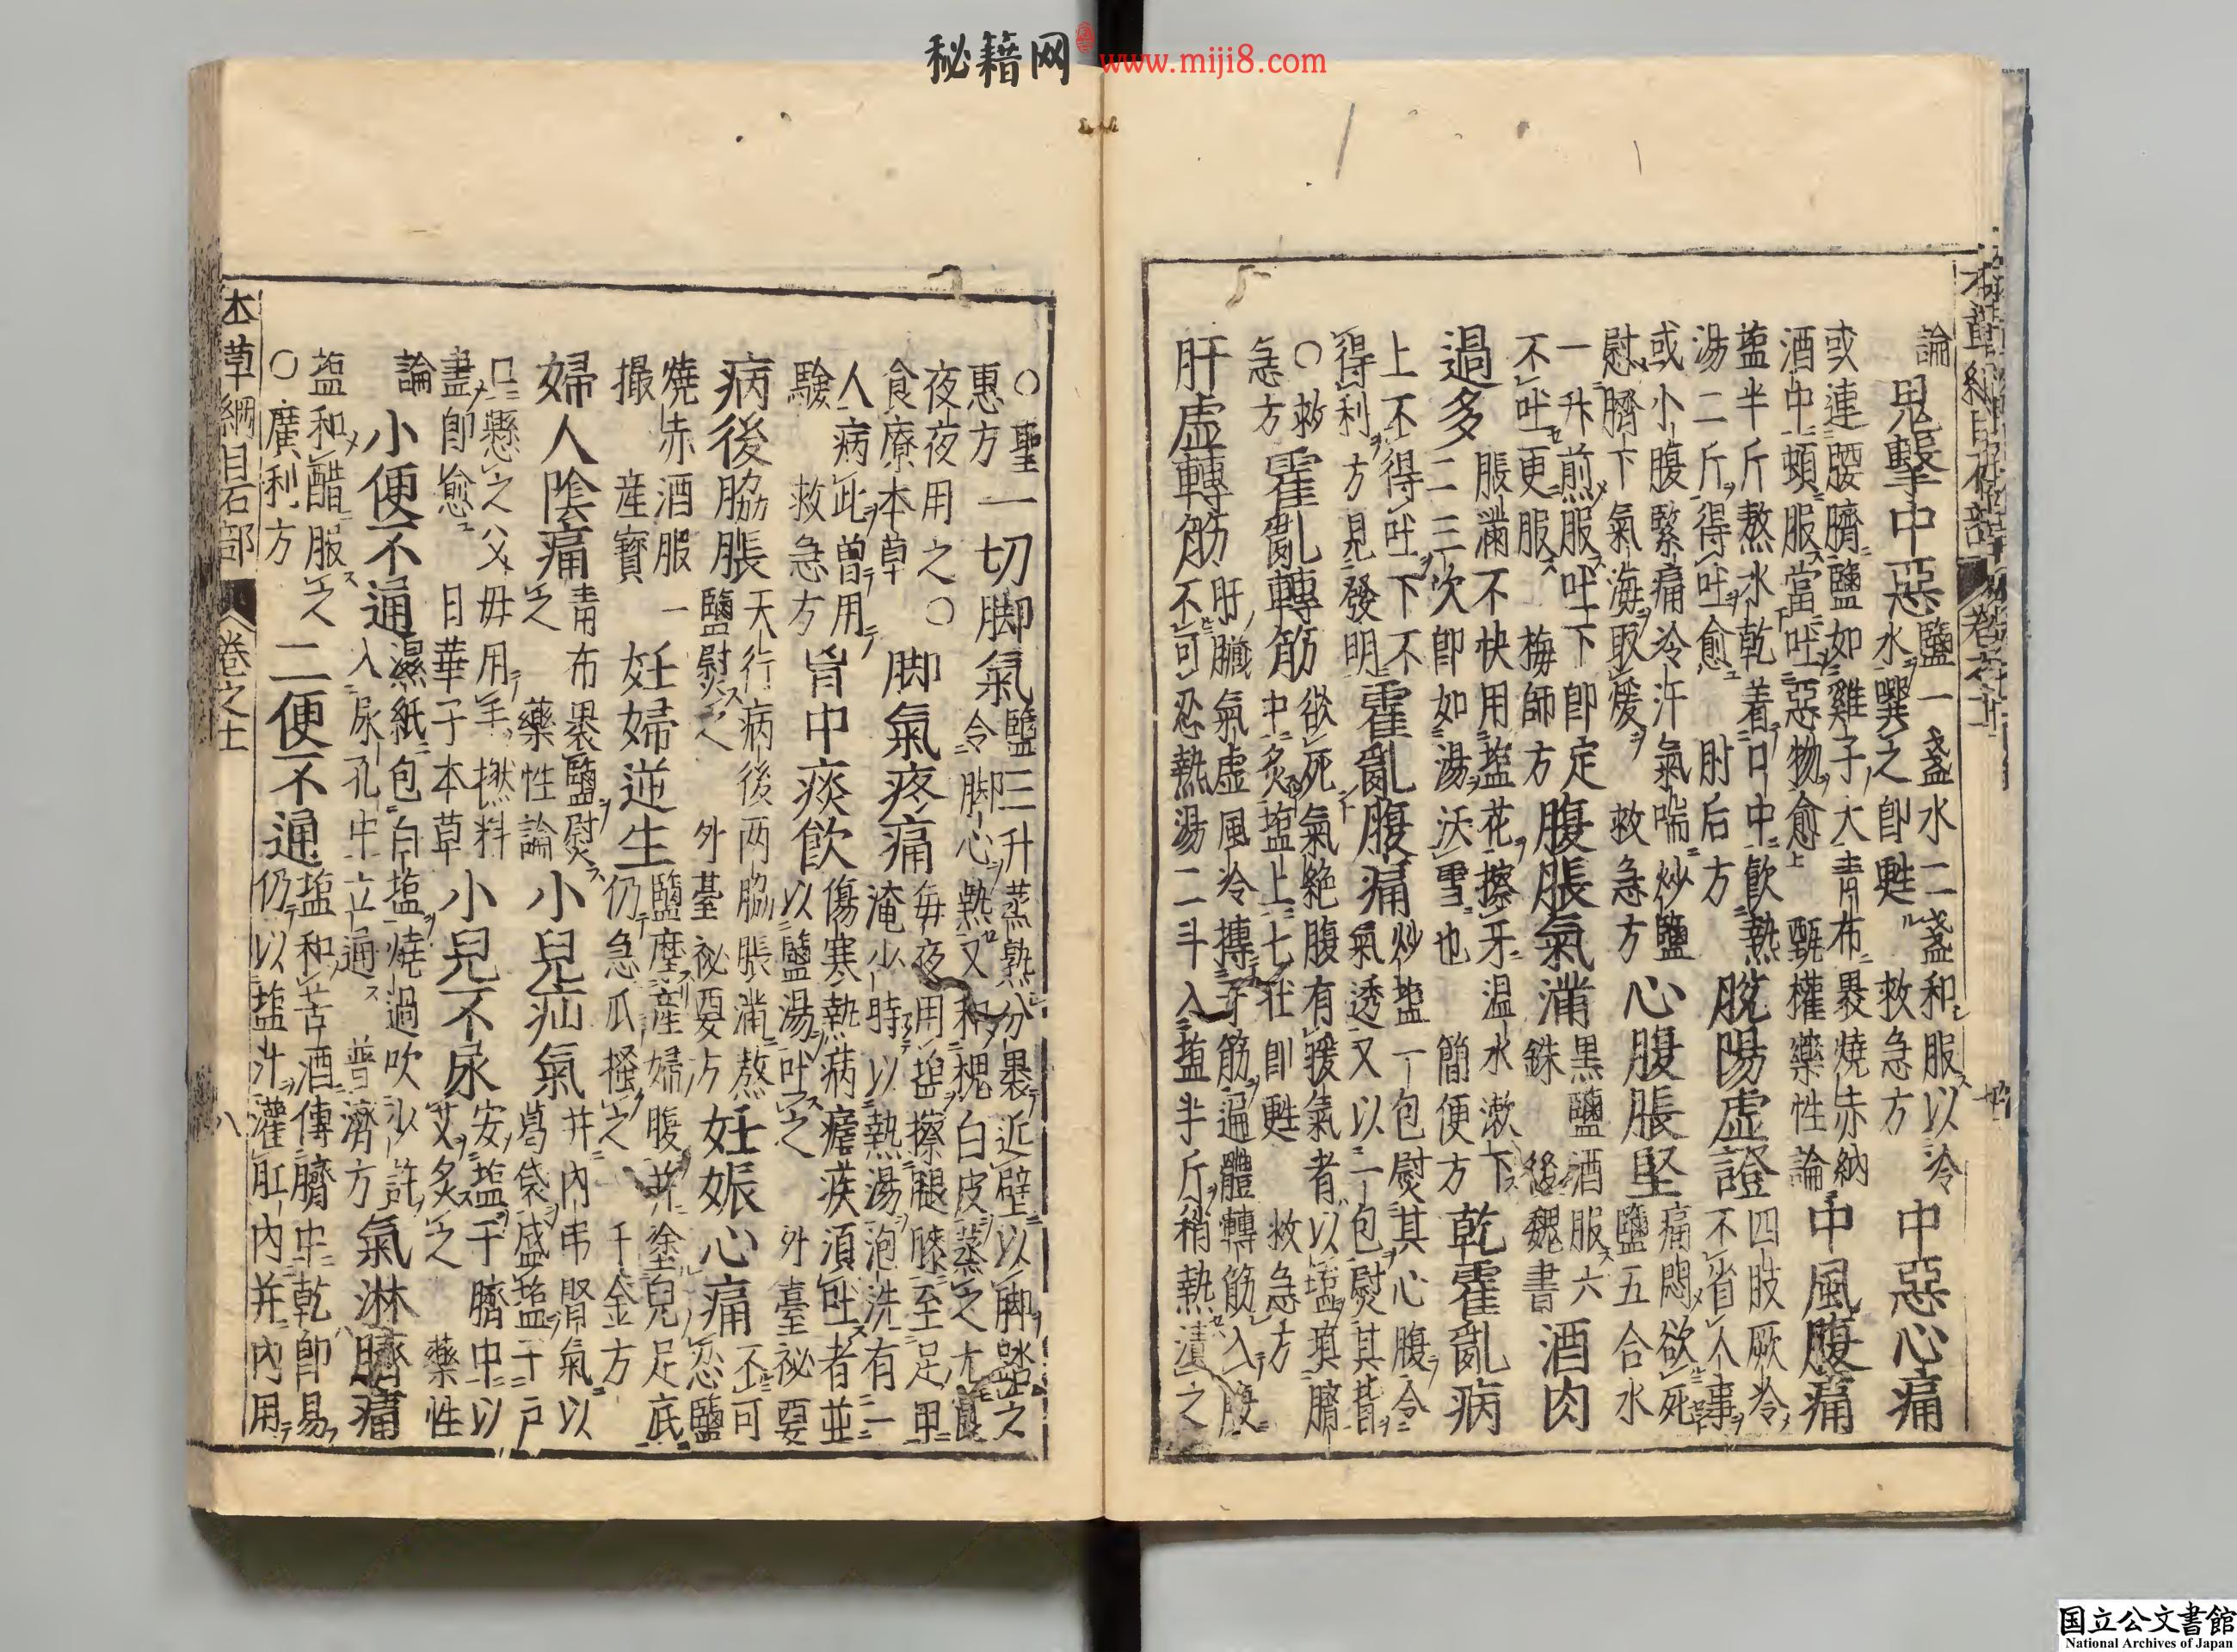 秘籍网 www.miji8.com
本草綱目石部 卷之十一
論
鬼擊中惡
鹽一盞水二盞和服以冷
水噀之即甦 救急方
中惡心痛
或連腰臍鹽如雞子大青布裹燒赤納
酒中頓服當吐惡物愈 甄權藥性論
中風腹痛
盐半斤熬水乾着口中飲熱
湯二斤得吐愈 肘后方
脫陽虛證
四肢厥冷
不省人事
或小腹緊痛冷汗氣喘炒鹽
熨臍下氣海取煖 救急方
心腹脹堅
痛悶欲死
鹽五合水
一升煎服吐下即定
不吐更服 梅師方
腹脹氣滿
黑鹽酒服六
銖 後魏書
酒肉
過多
脹滿不快用盐花擦牙温水漱下
二三次即如湯沃雪也 簡便方
乾霍亂病
上不得吐下不
得利 方見發明
霍亂腹痛
炒盐一包熨其心腹令
氣透又以一包熨其背
○救
急方
霍亂轉筋
欲死氣絶腹有暖氣者以盐填臍
中灸盐上七壯即甦 救急方
肝虛轉筋
肝臟氣虛風冷摶于筋遍體轉筋入腹
不可忍熱湯二斗入盐半斤稍熱漬之
○聖
惠方
一切脚氣
鹽三升蒸熟分裹近壁以脚踏之
令脚心熱又和槐白皮蒸之尤良
夜夜用之○
食療本草
脚氣疼痛
毎夜用盐擦腿膝至足甲
淹少時以熱湯泡洗有一
人病此曽用
驗 救急方
胷中痰飲
傷寒熱病瘧疾須吐者並
以鹽湯吐之 外臺祕要
病後脇脹
天行病後兩脇脹滿熬
鹽熨之 外臺祕要方
妊娠心痛
不可
忍鹽
燒赤酒服一
撮 産寳
妊婦逆生
鹽摩産婦腹并塗兒足底
仍急爪搔之 千金方
婦人陰痛
青布裹鹽熨
之 藥性論
小兒疝氣
并内吊腎氣以
葛袋盛盐于戸
口懸之父毋用手撚料
盡即愈 日華子本草
小兒不尿
安盐于臍中以
艾灸之 藥性
論
小便不通
濕紙包白盐燒過吹少許
入尿孔中立通 普濟方
氣淋臍痛
盐和醋服之
○廣利方
二便不通
盐和苦酒傅臍中乾即易
仍以盐汁灌肛内并内用
本草綱目石部 卷之十一 八
国立公文書館
National Archives of Japan